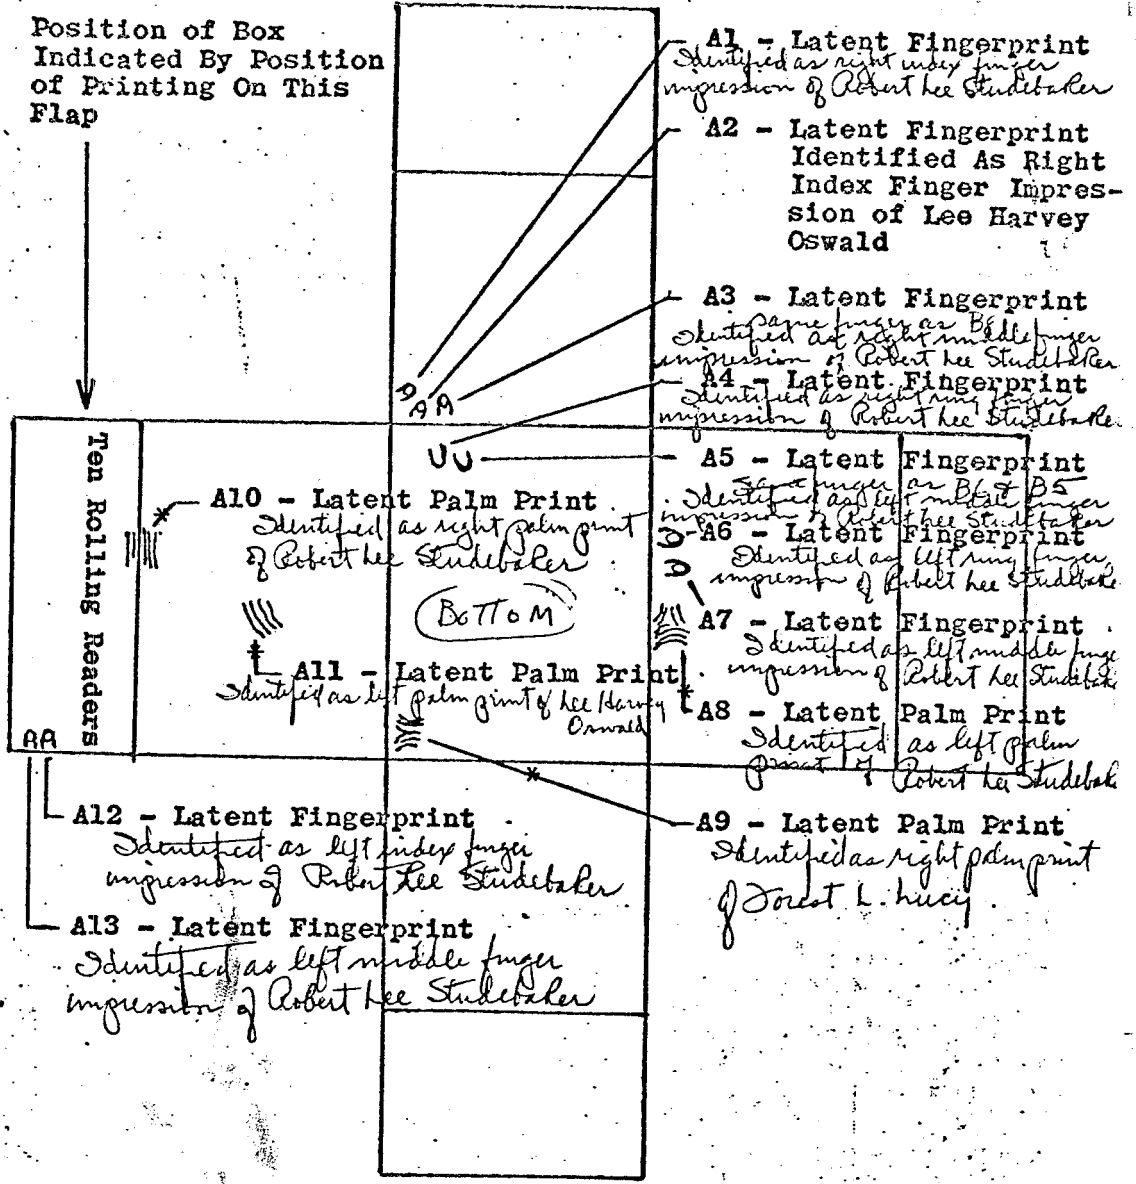 Position of Box
Indicated By Position
of Printing On This
Flap
A1 - Latent Fingerprint
Identified as right index finger
impression of Robert Lee Studebaker
A2 - Latent Fingerprint
Identified As Right
Index Finger Impres-
sion of Lee Harvey
Oswald
A3 - Latent Fingerprint
same finger as B8
Identified as right middle finger
impression of Robert Lee Studebaker
A4 - Latent Fingerprint
Identified as right ring finger
impression of Robert Lee Studebaker
A5 - Latent Fingerprint
same finger as B6 & B5
Identified as left middle finger
impression of Robert Lee Studebaker
A6 - Latent Fingerprint
Identified as left ring finger
impression of Robert Lee Studebake
A7 - Latent Fingerprint
Identified as left middle finge
impression of Robert Lee Studebak
A8 - Latent Palm Print
Identified as left palm
print of Robert Lee Studebak
A9 - Latent Palm Print
Identified as right palm print
of Forest L. Lucy
A10 - Latent Palm Print
Identified as right palm print
of Robert Lee Studebaker
BOTTOM
A11 - Latent Palm Print
Identified as left palm print of Lee Harvey
Oswald
Ten Rolling Readers
A A A
U U
A A
A12 - Latent Fingerprint
Identified as left index finger
impression of Robert Lee Studebaker
A13 - Latent Fingerprint
Identified as left middle finger
impression of Robert Lee Studebaker